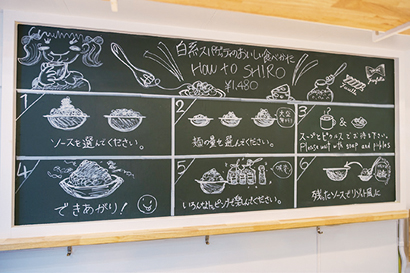 白系スパゲッティのおいしい食べかた
HOW to SHIRO
¥1,480
1
ソースを選んでください。
2
麺の量を選んでください。
3
スープとピクルスでお待ち下さい。
Please wait with soup and pickles
4
できあがり!
5
いろんなトッピングで楽しんでください。
6
残ったソースでリゾット風に